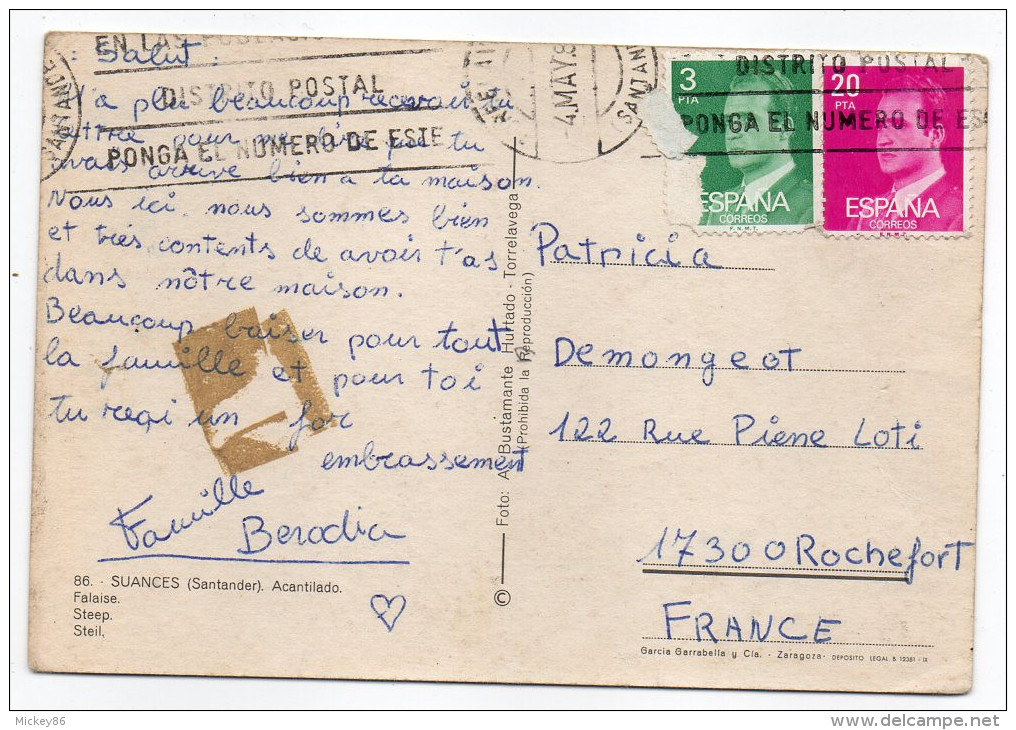 Salut:
a plu beaucoup recevoir tu
pour me dire que tu
avais arrive bien a la maison.
Nous ici, nous sommes bien
et très contents de avoir t'as
dans nôtre maison.
Beaucoup baiser pour tout
la famille et pour toi
tu reçi un for
embrassement
Famille
Berodia
86. - SUANCES (Santander). Acantilado.
Falaise.
Steep.
Steil.
© Foto: A. Bustamante Hurtado - Torrelavega
(Prohibida la Reproducción)
EN LAS
DISTRITO POSTAL
PONGA EL NUMERO DE ESTE
4.MAY.8
SANTANDE
SANTAN
DISTRITO POSTAL
PONGA EL NUMERO DE ES
3
PTA
ESPAÑA
CORREOS
F.N.M.T.
20
PTA
ESPAÑA
CORREOS
F.N.M.T.
Patricia
Demongeot
122 Rue Piene Loti
17300 Rochefort
FRANCE
Garcia Garrabella y Cía. - Zaragoza - DEPOSITO LEGAL B. 12381 - IX
Mickey86
www.delcampe.net